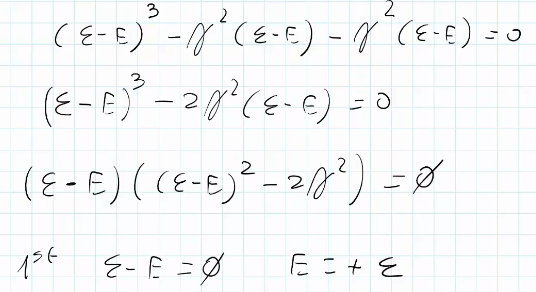 (ε-E)³ - γ²(ε-E) - γ²(ε-E) = 0
(ε-E)³ - 2γ²(ε-E) = 0
(ε-E)((ε-E)² - 2γ²) = ∅
1st ε-E = ∅ E = + ε